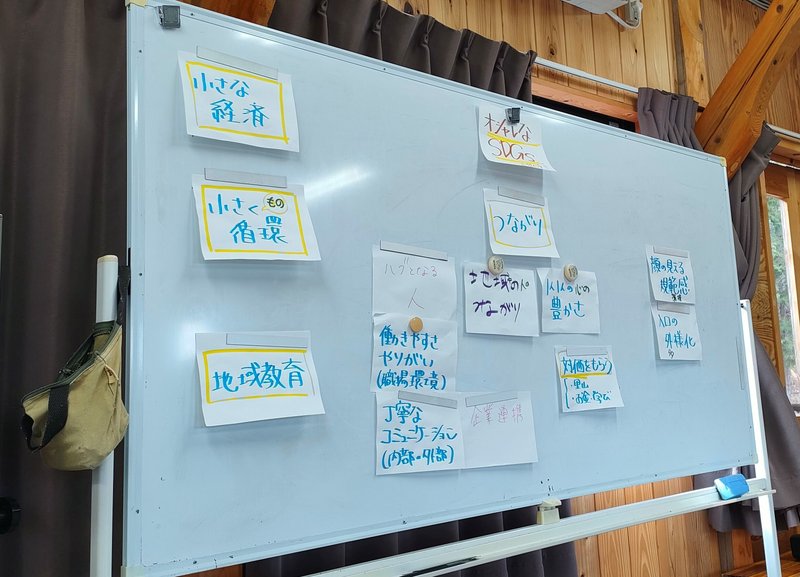 小さな
経済
小さく
もの
循環
地域教育
オシャレな
SDGs
つながり
ハブとなる
人
地域の人の
つながり
人の心の
豊かさ
働きやすさ
やりがい
(職場環境)
丁寧な
コミュニケーション
(内部・外部)
企業連携
対価をもらう
・里山
顔の見える
規範感
入口の
多様化